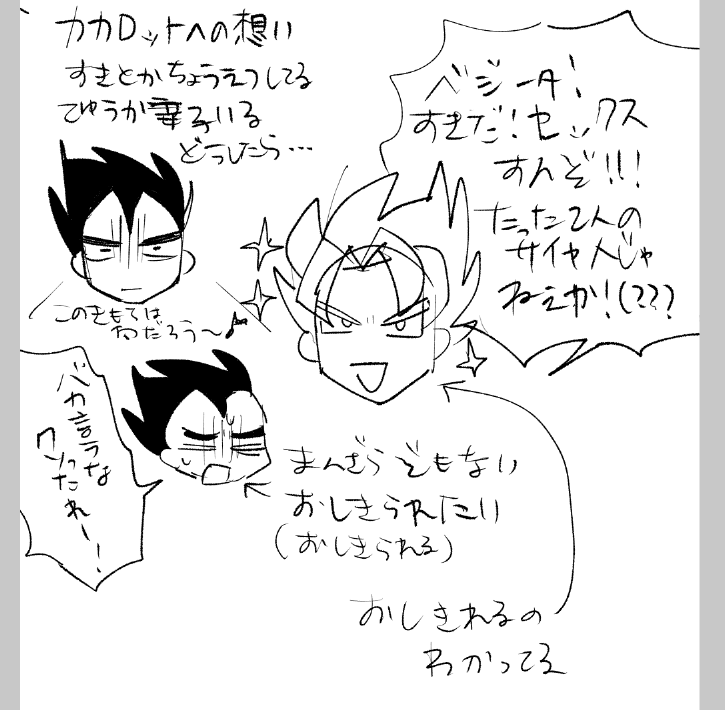 カカロットへの想い
すきとかちょうえつしてる
てゅうか妻子いる
どうしたら…
このきもちは
なんだろう〜♪
ベジータ!
すきだ!セックス
すんぞ!!!
たった2人の
サイヤ人じゃ
ねぇか!(???
バカ言うな
クソったれー!
まんざらでもない
おしきられたい
(おしきられる)
おしきれるの
わかってる